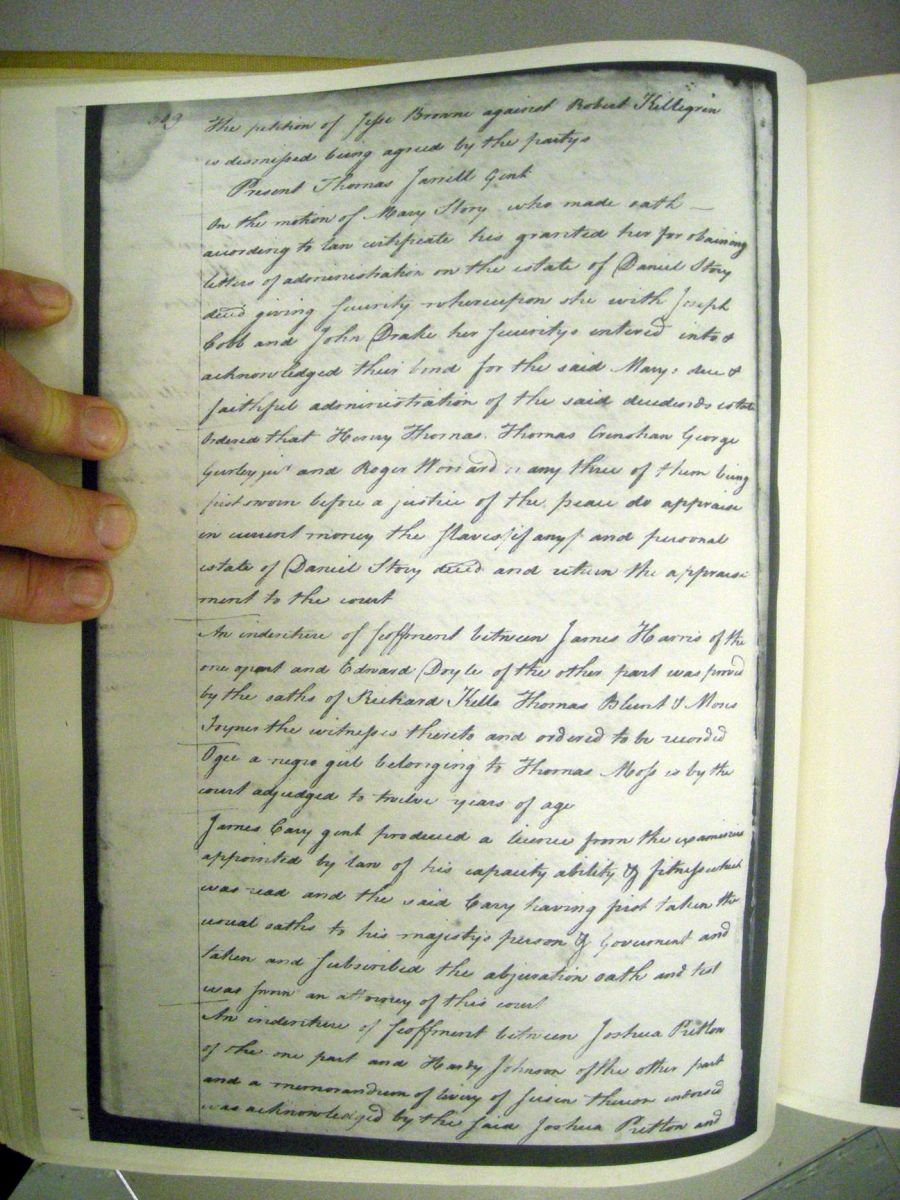 The petition of Jesse Browne against Robert Killegrin
is dismissed being agreed by the partys
Present Thomas Jarrell Gent
On the motion of Mary Story who made oath —
according to law certificate his granted her for obtaining
letters of administration on the estate of Daniel Story
deced giving security whereupon she with Joseph
Cobb and John Drake her securitys entered into &
acknowledged their bond for the said Mary's due &
faithful administration of the said decedents estate
Ordered that Henry Thomas, Thomas Crenshaw George
Gurley junr and Roger Worrard or any three of them being
first sworn before a justice of the peace do appraise
in current money the slaves (if any) and personal
estate of Daniel Story deced and return the appraise
ment to the court
An indenture of feoffment between James Harris of the
one apart and Edward Doyle of the other part was proved
by the oaths of Rickard Kello Thomas Blunt & Moses
Joyner the witnesses thereto and ordered to be recorded
a negro girl belonging to Thomas Moss is by the
court adjudged to twelve years of age
James Cary gent produced a licence from the examiners
appointed by law of his capacity ability & fitness which
was read and the said Cary having first taken the
usual oaths to his majestys person & Government and
taken and subscribed the abjuration oath and test
was sworn an attorney of this court
An indenture of feoffment between Joshua Pretlow
of the one part and Hardy Johnson of the other part
and a memorandum of livery of seisen thereon endorsed
was acknowledged by the said Joshua Pretlow and